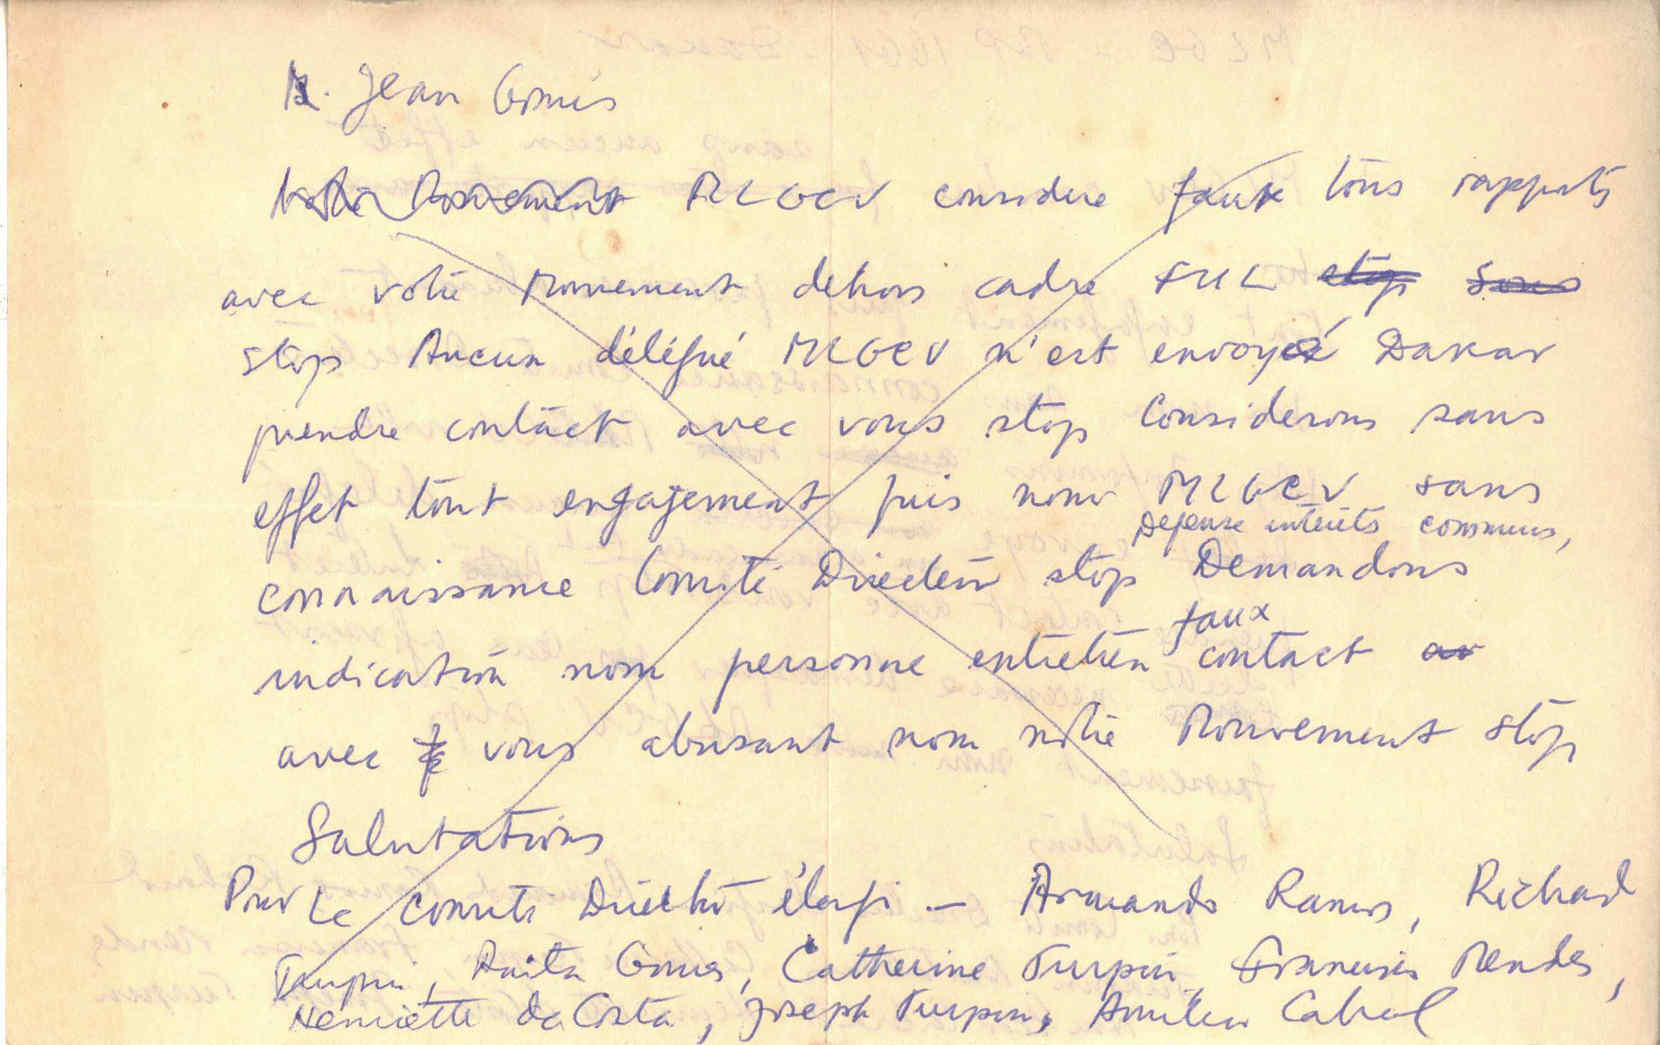 M. Jean Gomis
Notre Mouvement MLGCV considere faux tous rapports
avec votre Mouvement dehors cadre FUL stop Sous
stop Aucun délégué MLGCV n'est envoyé Dakar
prendre contact avec vous stop Considerons sans
effet tout engagement pris nom MLGCV sans
Defense intérêts communs,
connaissance Comité Directeur stop Demandons
faux
indication nom personne entretien contact av
avec vous abusant nom notre Mouvement stop
Salutations
Pour Le Comité Directeur élargi — Armando Ramos, Richard
Turpin, Anita Gomes, Catherine Turpin, Francisco Mendes,
Henriette da Costa, Joseph Turpin, Amilcar Cabral